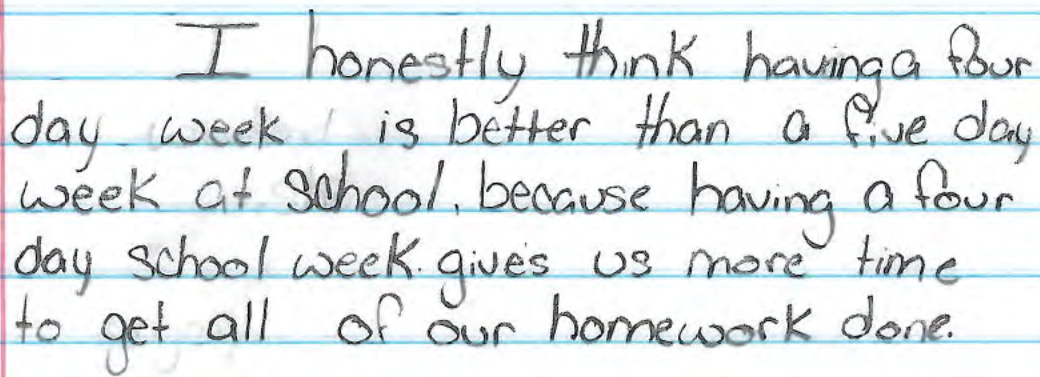 I honestly think having a four
day week is better than a five day
week at school. because having a four
day school week. gives us more time
to get all of our homework done.